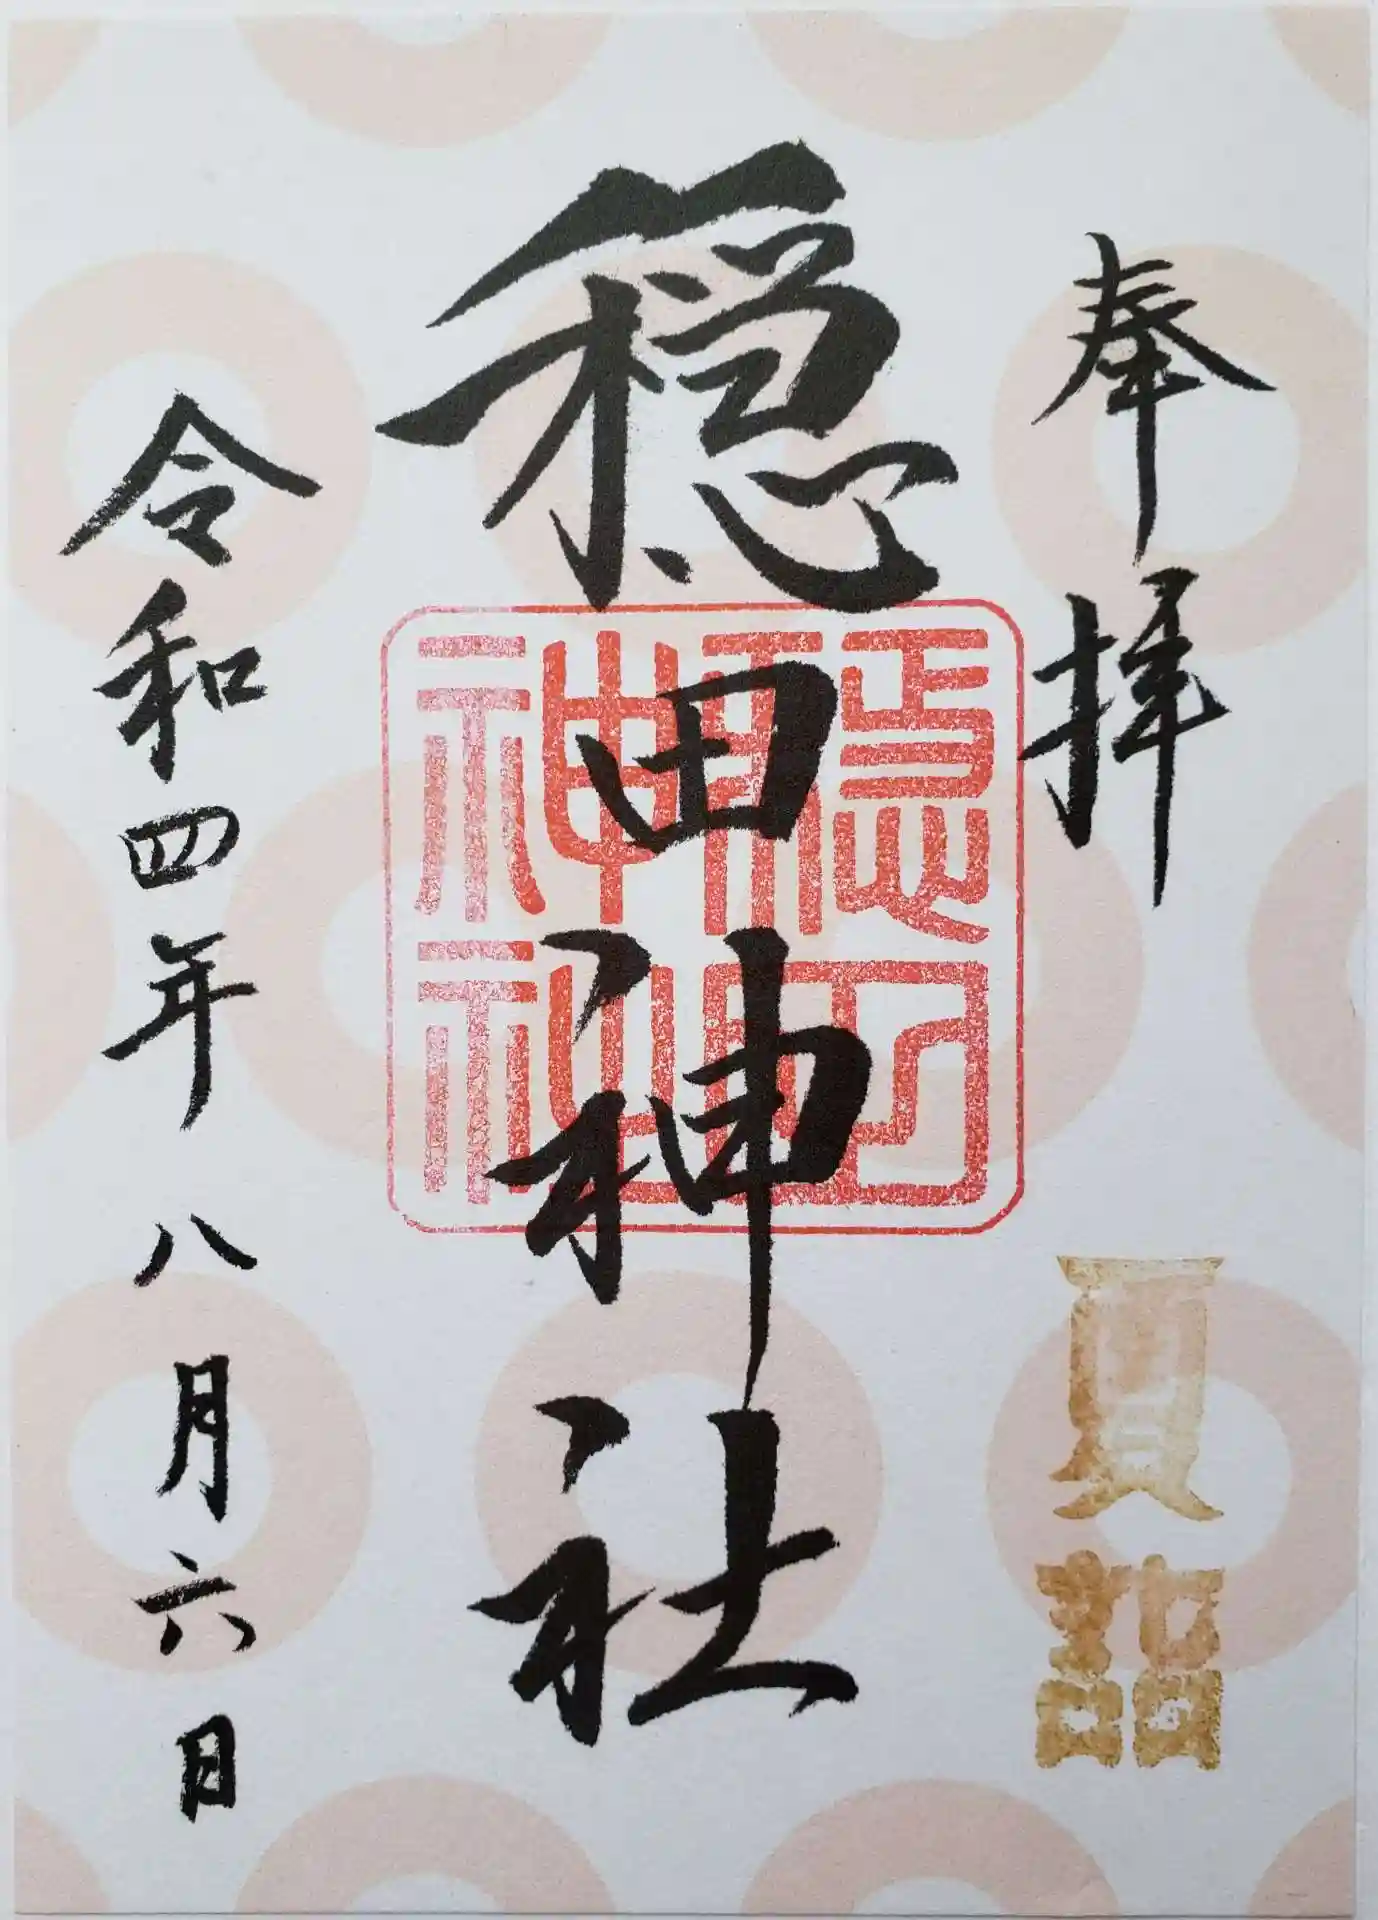 奉拝
夏詣
穏田神社
穏田
神社
令和四年八月六日